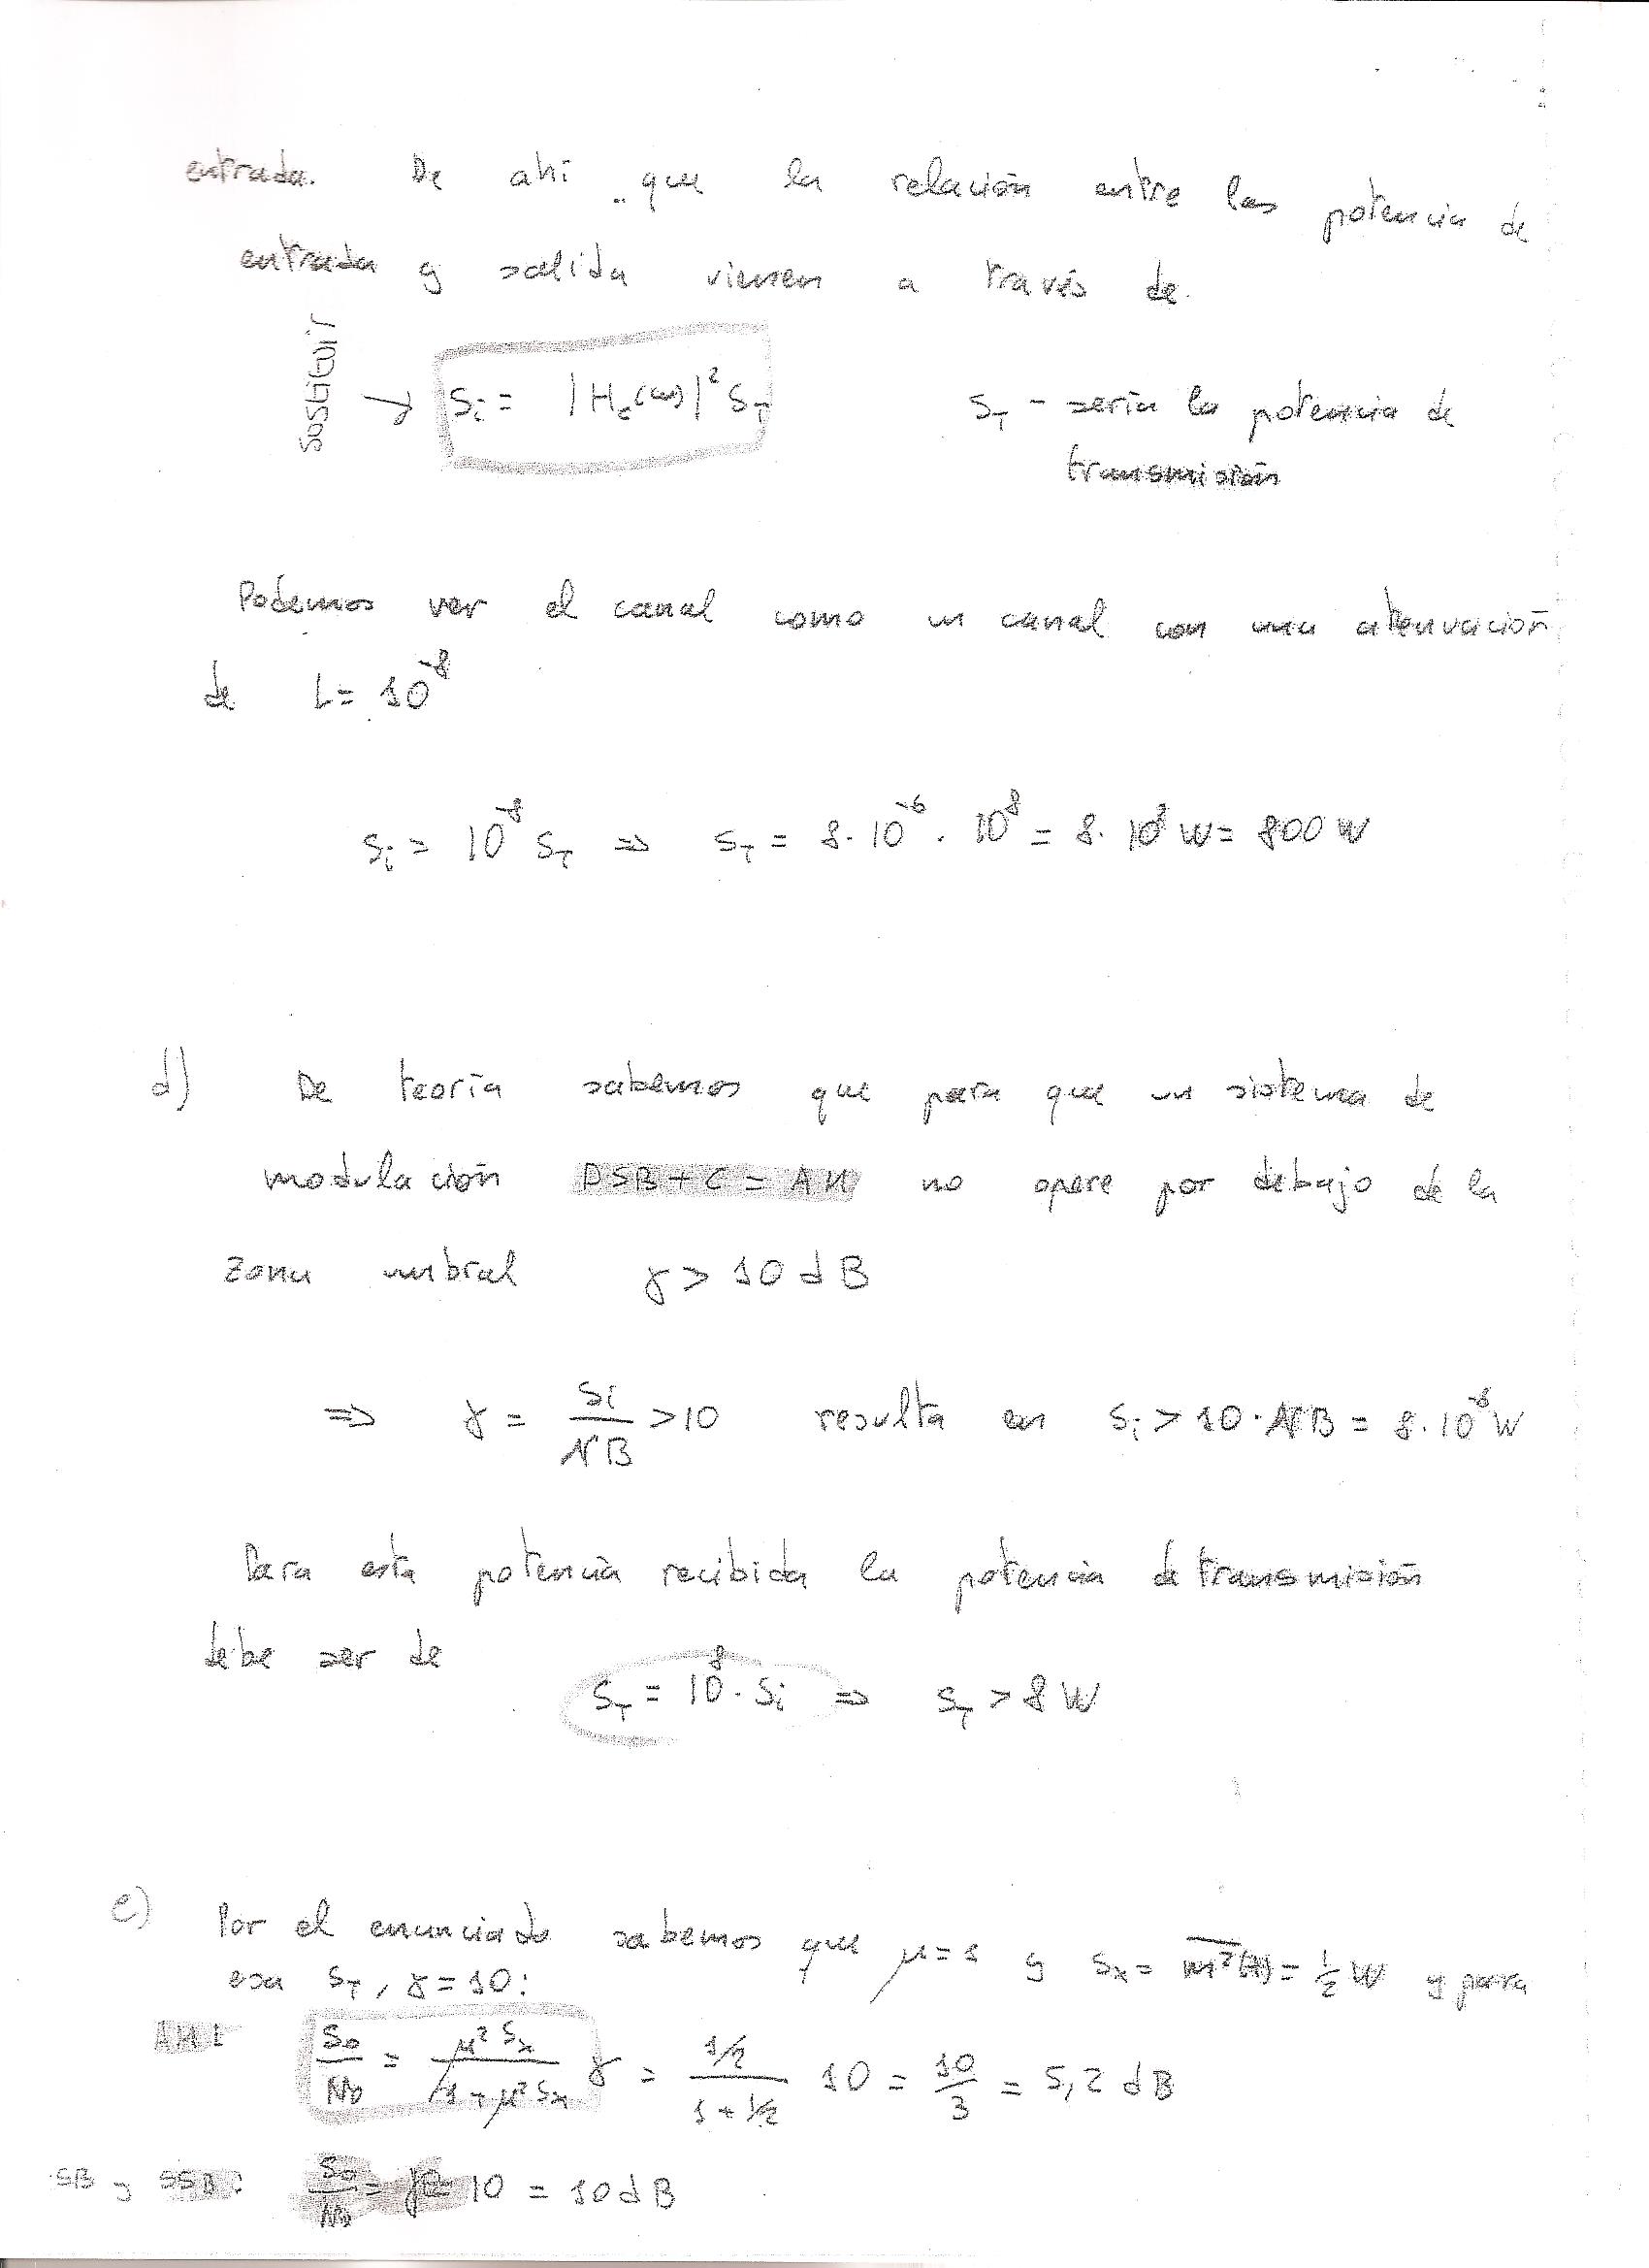 entrada. De ahí que la relación entre las potencia de
entrada y salida vienen a través de.
Sostituir → Si = |Hc(ω)|² S_T     S_T - sería la potencia de
transmisión
Podemos ver el canal como un canal con una atenuación
de L = 10⁻⁸
Si = 10⁻⁸ S_T ⇒ S_T = 8·10⁻⁶ · 10⁸ = 8·10² W = 800 W
d) De teoría sabemos que para que un sistema de
modulación DSB+C = AM no opere por debajo de la
zona umbral γ > 10 dB
⇒ γ = Si/NB > 10 resulta en Si > 10·NB = 8·10⁻⁸ W
Para esta potencia recibida la potencia de transmisión
debe ser de
S_T = 10⁸ · Si ⇒ S_T > 8 W
e) Por el enunciado sabemos que μ = 1 y Sx = m²(t) = 1/2 W y para
esa S_T, γ = 10:
AM: So/No = μ² Sx / (1 + μ² Sx) γ = (1/2)/(1 + 1/2) 10 = 10/3 = 5,2 dB
SB y SSB: So/No = γ = 10 = 10 dB